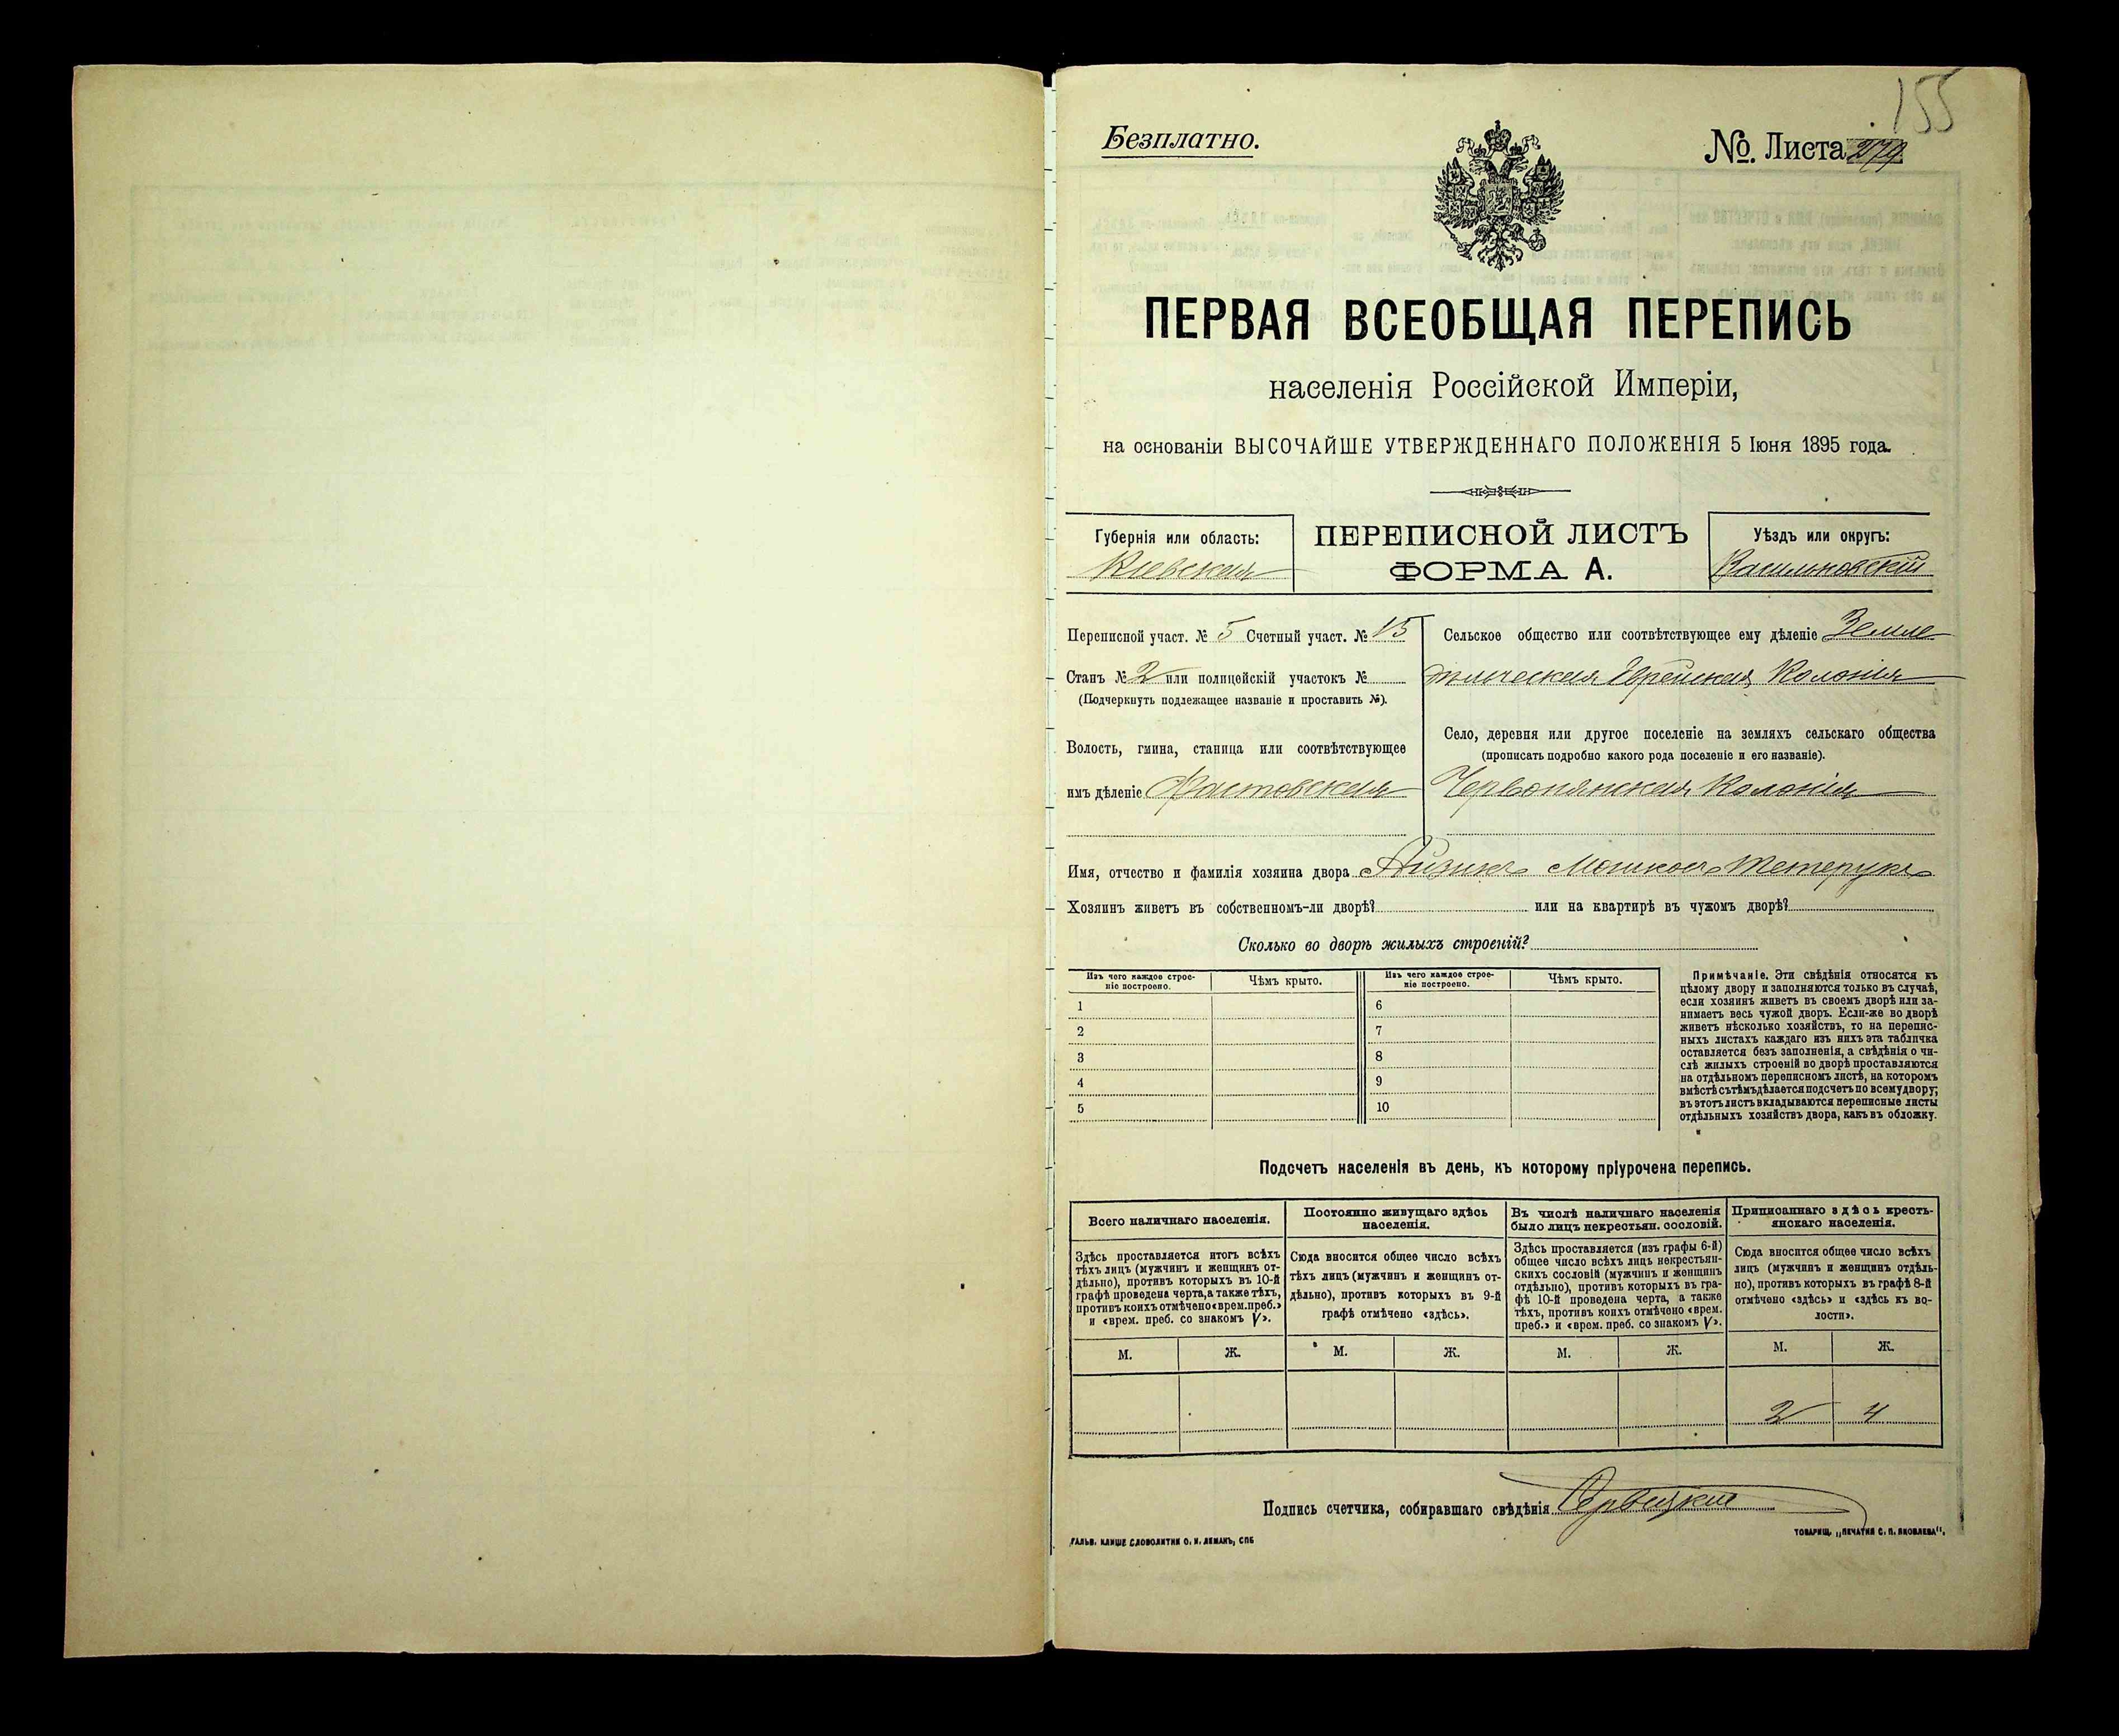 155
Безплатно.
№. Листа
ПЕРВАЯ ВСЕОБЩАЯ ПЕРЕПИСЬ
населенія Россійской Имперіи,
на основаніи ВЫСОЧАЙШЕ УТВЕРЖДЕННАГО ПОЛОЖЕНІЯ 5 Іюня 1895 года.
Губернія или область:
Кіевская
ПЕРЕПИСНОЙ ЛИСТЪ
ФОРМА А.
Уѣздъ или округъ:
Васильковскій
Переписной участ. № 5 Счетный участ. № 15
Станъ № 2 или полицейскій участокъ №
(Подчеркнуть подлежащее названіе и проставить №).
Волость, гмина, станица или соотвѣтствующее
имъ дѣленіе Фастовская
Сельское общество или соотвѣтствующее ему дѣленіе Земле
дѣльческая Еврейская Колонія
Село, деревня или другое поселеніе на земляхъ сельскаго общества
(прописать подробно какого рода поселеніе и его названіе).
Червонянская Колонія
Имя, отчество и фамилія хозяина двора Айзикъ Мошковъ Тетерукъ
Хозяинъ живетъ въ собственномъ-ли дворѣ? или на квартирѣ въ чужомъ дворѣ?
Сколько во дворѣ жилыхъ строеній?
Изъ чего каждое строе-
ніе построено.
Чѣмъ крыто.
Изъ чего каждое строе-
ніе построено.
Чѣмъ крыто.
1 6
2 7
3 8
4 9
5 10
Примѣчаніе. Эти свѣдѣнія относятся къ
цѣлому двору и заполняются только въ случаѣ,
если хозяинъ живетъ въ своемъ дворѣ или за-
нимаетъ весь чужой дворъ. Если-же во дворѣ
живетъ нѣсколько хозяйствъ, то на перепис-
ныхъ листахъ каждаго изъ нихъ эта табличка
оставляется безъ заполненія, а свѣдѣнія о чи-
слѣ жилыхъ строеній во дворѣ проставляются
на отдѣльномъ переписномъ листѣ, на которомъ
вмѣстѣ съ тѣмъ дѣлается подсчетъ по всему двору;
въ этотъ листъ вкладываются переписные листы
отдѣльныхъ хозяйствъ двора, какъ въ обложку.
Подсчетъ населенія въ день, къ которому пріурочена перепись.
Всего наличнаго населенія.
Здѣсь проставляется итогъ всѣхъ
тѣхъ лицъ (мужчинъ и женщинъ от-
дѣльно), противъ которыхъ въ 10-й
графѣ проведена черта, а также тѣхъ,
противъ коихъ отмѣчено «врем. преб.»
и «врем. преб. со знакомъ V».
Постоянно живущаго здѣсь
населенія.
Сюда вносится общее число всѣхъ
тѣхъ лицъ (мужчинъ и женщинъ от-
дѣльно), противъ которыхъ въ 9-й
графѣ отмѣчено «здѣсь».
Въ числѣ наличнаго населенія
было лицъ некрестьян. сословій.
Здѣсь проставляется (изъ графы 6-й)
общее число всѣхъ лицъ некрестьян-
скихъ сословій (мужчинъ и женщинъ
отдѣльно), противъ которыхъ въ гра-
фѣ 10-й проведена черта, а также
тѣхъ, противъ коихъ отмѣчено «врем.
преб.» и «врем. преб. со знакомъ V».
Приписаннаго здѣсь кресть-
янскаго населенія.
Сюда вносится общее число всѣхъ
лицъ (мужчинъ и женщинъ отдѣль-
но), противъ которыхъ въ графѣ 8-й
отмѣчено «здѣсь» и «здѣсь къ во-
лости».
М. Ж. М. Ж. М. Ж. М. Ж.
2 4
Подпись счетчика, собиравшаго свѣдѣнія
ГАЛЬВ. КЛИШЕ СЛОВОЛИТНИ О. И. ЛЕМАНЪ, СПБ
ТОВАРИЩ. „ПЕЧАТНЯ С. П. ЯКОВЛЕВА".